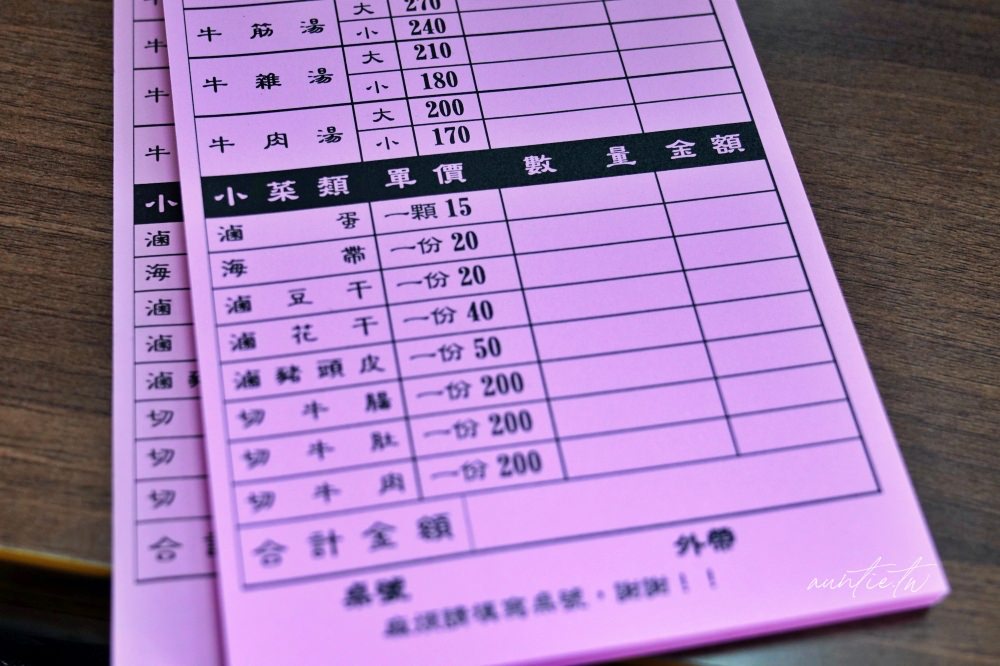 大 270
牛筋湯 小 240
牛雜湯 大 210
小 180
牛肉湯 大 200
小 170
小菜類 單價 數量 金額
滷蛋 一顆 15
海帶 一份 20
滷豆干 一份 20
滷花干 一份 40
滷豬頭皮 一份 50
切牛腸 一份 200
切牛肚 一份 200
切牛肉 一份 200
合計金額
桌號 外帶
麻煩請填寫桌號,謝謝!!
牛
牛
牛
牛
小
滷
海
滷
滷
滷
切
切
切
合
auntie.tw